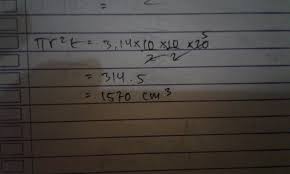 =
πr²t = 3,14 × 10/2 × 10/2 × 20 5
= 314 . 5
= 1570 cm³